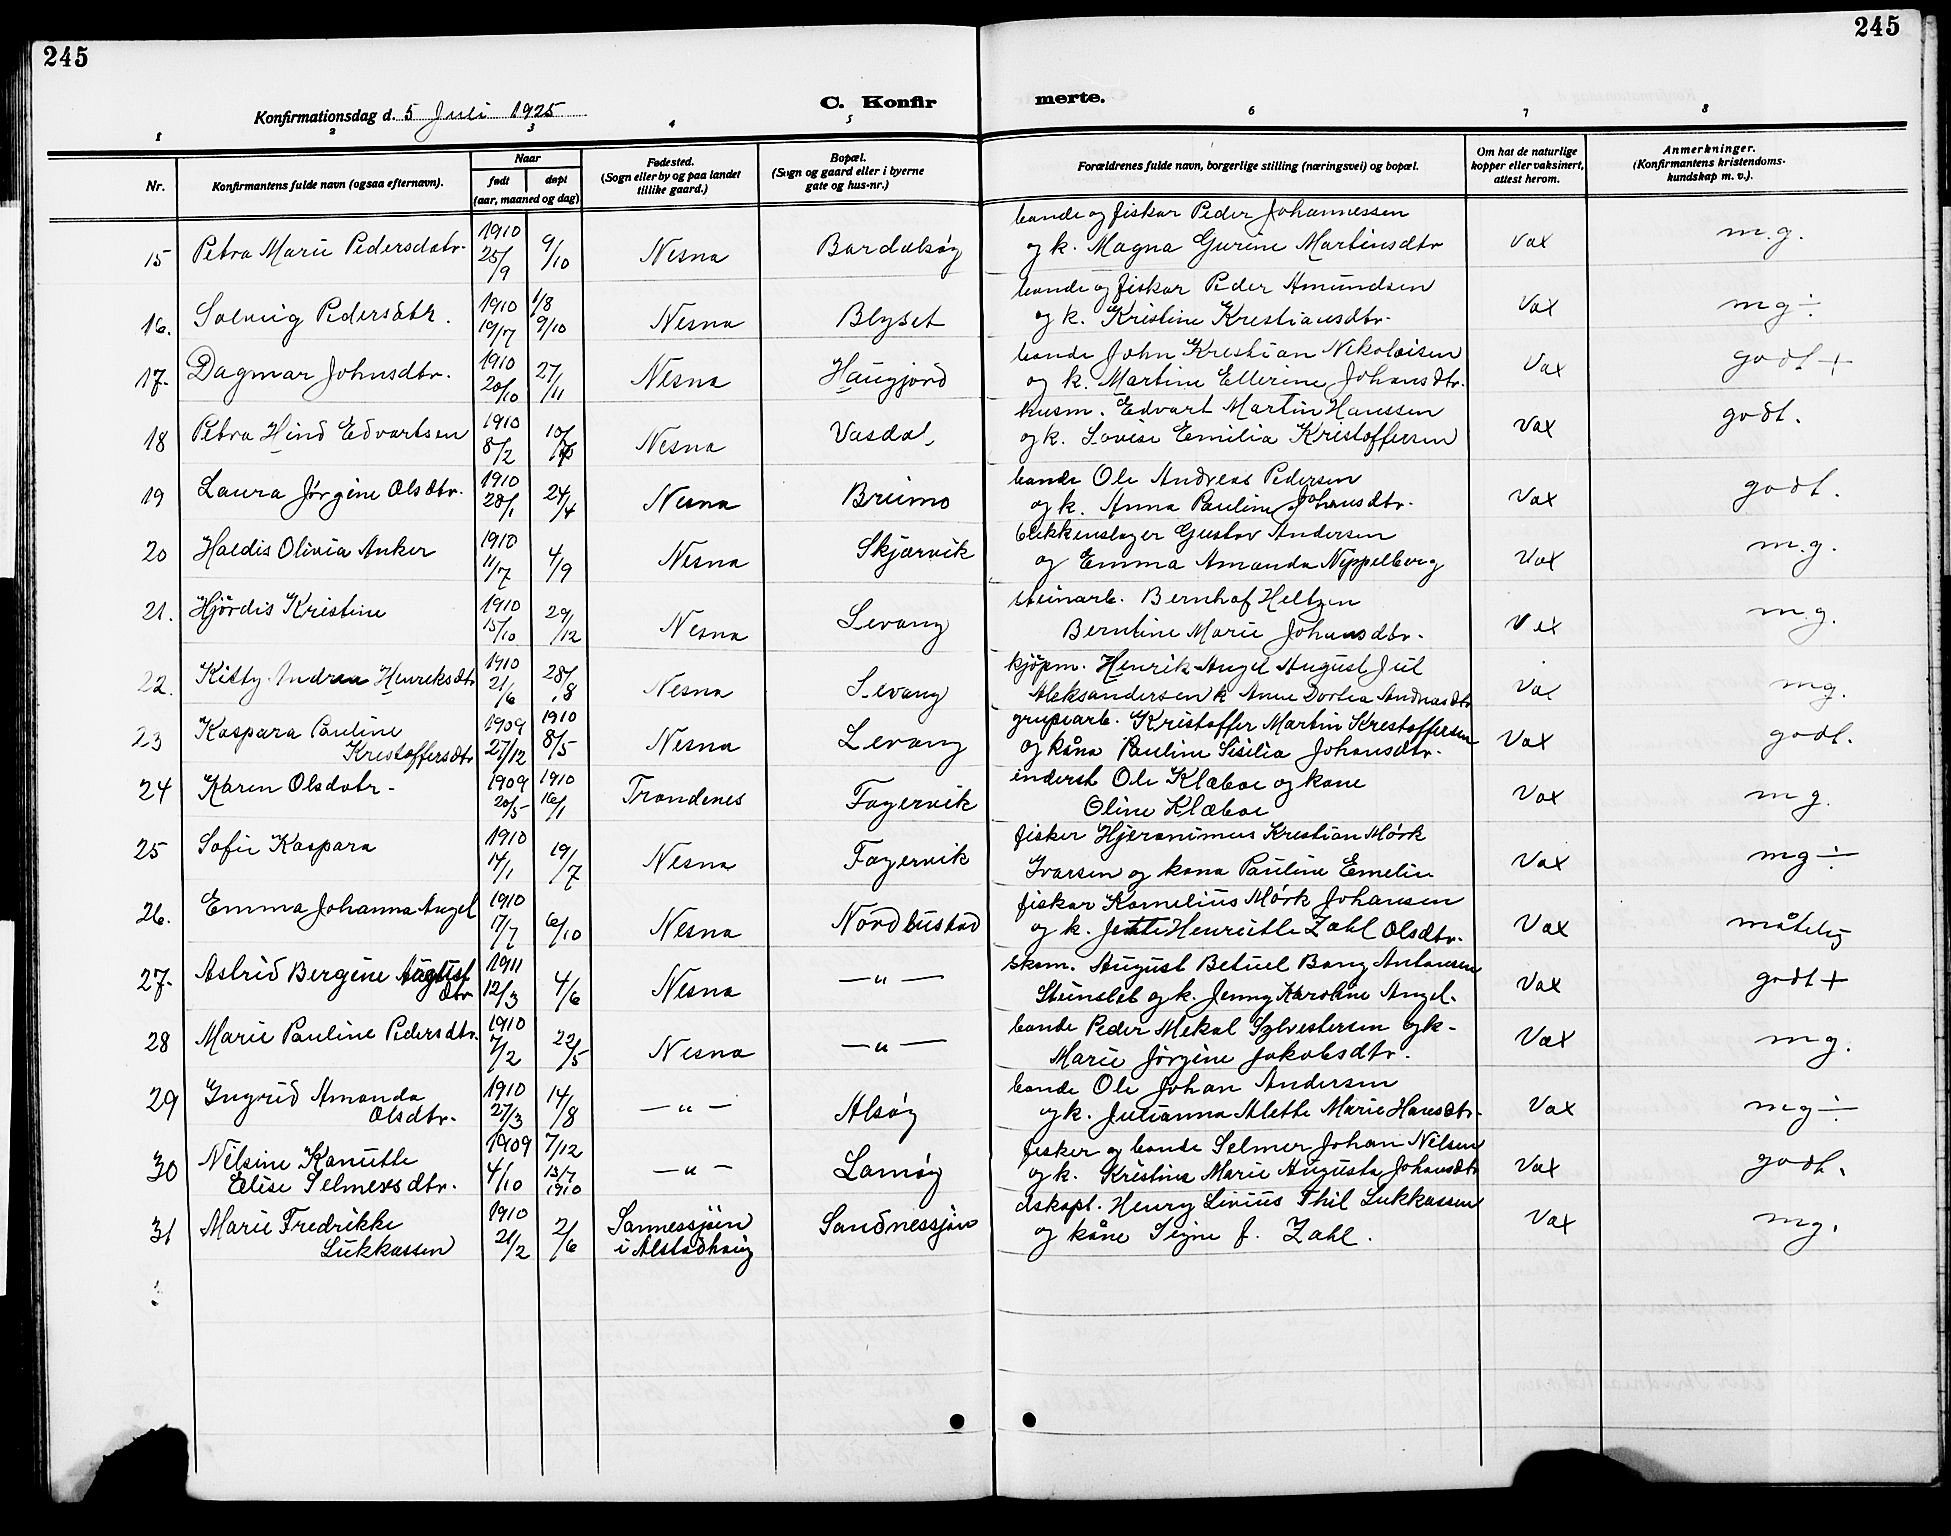 245
245
Konfirmationsdag d. 5 Juli 1925
C. Konfir
merte.
1 2 3 4 5 6 7 8
Nr.
Konfirmantens fulde navn (ogsaa efternavn).
Naar
født
døpt
(aar, maaned og dag)
Fødested.
(Sogn eller by og paa landet
tillike gaard.)
Bopæl.
(Sogn og gaard eller i byerne
gate og hus-nr.)
Forældrenes fulde navn, borgerlige stilling (næringsvei) og bopæl.
Om hat de naturlige
kopper eller vaksinert,
attest herom.
Anmerkninger.
(Konfirmantens kristendoms-
kundskap m. v.).
15 Petra Marie Pedersdatr. 1910 25/9 9/10 Nesna Bardalsøy bonde og fisker Peder Johannessen
og k. Magna Gurine Martinsdtr Vax m.g.
16. Solveig Pedersdtr. 1910 19/7 1/8 9/10 Nesna Blyset bonde og fisker Peder Amundsen
og k. Kristine Krestiansdtr. Vax mg ÷
17. Dagmar Johnsdtr. 1910 20/10 27/11 Nesna Haugjord bonde John Krestian Nikolaisen
og k. Martine Ellerine Johansdtr. Vax godt +
18 Petra Hind Edvartsen 1910 8/2 10/ Nesna Vasdal husm. Edvart Martin Hanssen
og k. Lovise Emilia Kristoffersen Vax godt.
19 Laura Jørgine Olsdtr. 1910 28/1 24/4 Nesna Bruimo bonde Ole Andreas Pedersen
og k. Anna Pauline Johansdtr. Vax godt.
20 Haldis Olivia Anker 1910 11/7 4/9 Nesna Skjærvik blikkenslager Gustav Andersen
og Emma Amanda Nippelberg Vax m.g.
21. Hjördis Kristine 1910 15/10 29/12 Nesna Levang steinarb. Bernhof Heltzen
Berntine Marie Johansdtr. Vax m.g.
22. Kitty Andrea Henriksdtr 1910 21/6 28/8 Nesna Levang kjöpm. Henrik Angel August Jul
Aleksandersen k Anne Dortea Andreasdtr Vax mg.
23 Kaspara Pauline
Kristoffersdtr 1909 27/12 1910 8/5 Nesna Levang grubearb. Kristoffer Martin Krestoffersen
og kåna Pauline Sisilia Johansdtr. Vax godt.
24 Karen Olsdatr. 1909 20/5 1910 16/1 Trondenes Fagervik inderst Ole Klæboe og kone
Oline Klæboe Vax mg.
25 Sofie Kaspara 1910 14/1 19/7 Nesna Fagervik fisker Hjeronimus Krestian Mörk
Ivarsen og kona Pauline Emelie Vax mg ÷
26. Emma Johanna Angel 1910 17/7 6/10 Nesna Nordbustad fisker Kornelius Mörk Johansen
og k. Jette Henriette Zahl Olsdtr. Vax måtelig
27. Astrid Bergine August
dtr 1911 12/3 4/6 Nesna — " — Skom. August Betuel Bang Antonsen
Steinslet og k. Jenny Karoline Angel. Vax godt +
28 Marie Pauline Pedersdtr. 1910 7/2 22/5 Nesna — " — bonde Peder Mekal Sylvestersen og k.
Marie Jørgine Jakobsdtr. Vax mg.
29 Ingrid Amanda
Olsdtr. 1910 27/3 14/8 — " — Alsøy bonde Ole Johan Andersen
og k. Julianna Alette Marie Hansdtr. Vax mg ÷
30 Nilsine Kanutte
Elise Selmersdtr. 1909 4/10 7/12 13/7 1910 — " — Lamøy fisker og bonde Selmer Johan Nilsen
og k. Kristine Marie Augusta Johansdtr Vax godt.
31 Marie Fredrikke
Lukkassen 1910 21/2 2/6 Sannessjöen
i Alstadhaug Sandnessjöen dskapt. Henry Livius Thil Lukkassen
og kåne Signe f. Zahl. Vax mg.